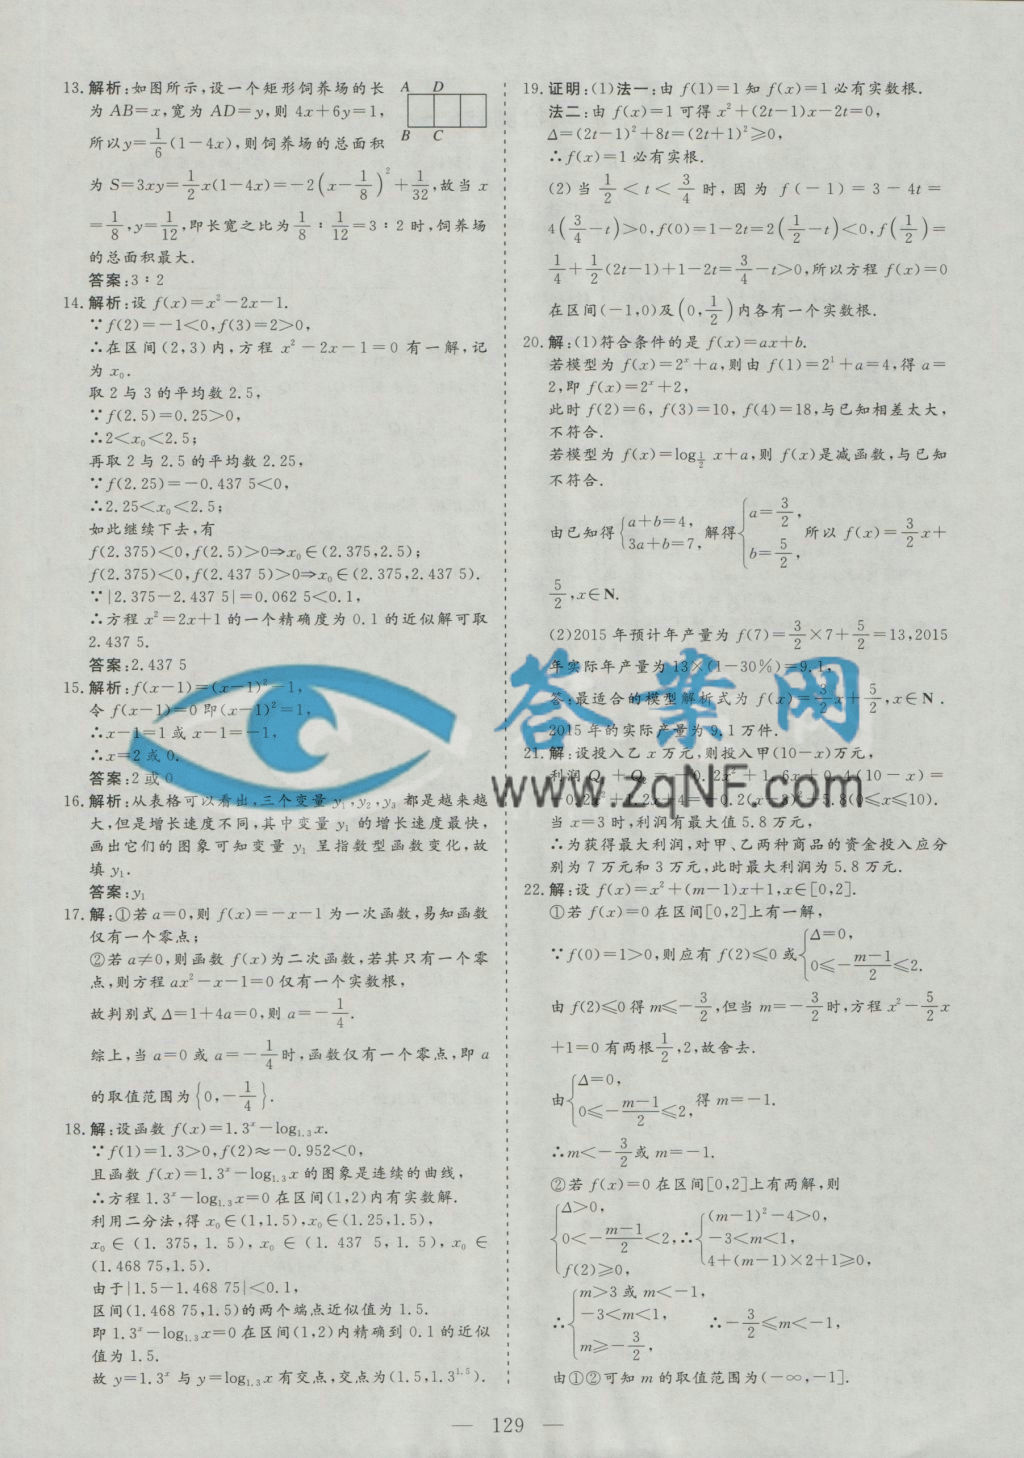 13. 解析:如图所示,设一个矩形饲养场的长
为 AB=x,宽为 AD=y,则 4x+6y=1,
所以y=1/6(1-4x),则饲养场的总面积
A D
B C
为 S=3xy=1/2x(1-4x)=-2(x-1/8)²+1/32,故当 x
=1/8,y=1/12,即长宽之比为1/8∶1/12=3∶2时,饲养场
的总面积最大.
答案:3∶2
14. 解析:设 f(x)=x²-2x-1.
∵f(2)=-1<0,f(3)=2>0,
∴在区间(2,3)内,方程 x²-2x-1=0 有一解,记
为 x₀.
取 2 与 3 的平均数 2.5,
∵f(2.5)=0.25>0,
∴2<x₀<2.5;
再取 2 与 2.5 的平均数 2.25,
∵f(2.25)=-0.437 5<0,
∴2.25<x₀<2.5;
如此继续下去,有
f(2.375)<0,f(2.5)>0⇒x₀∈(2.375,2.5);
f(2.375)<0,f(2.437 5)>0⇒x₀∈(2.375,2.437 5).
∵|2.375-2.437 5|=0.062 5<0.1,
∴方程 x²=2x+1 的一个精确度为 0.1 的近似解可取
2.437 5.
答案:2.437 5
15. 解析:f(x-1)=(x-1)²-1,
令 f(x-1)=0 即(x-1)²=1,
∴x-1=1 或 x-1=-1,
∴x=2 或 0.
答案:2 或 0
16. 解析:从表格可以看出,三个变量 y₁,y₂,y₃ 都是越来越
大,但是增长速度不同,其中变量 y₁ 的增长速度最快,
画出它们的图象可知变量 y₁ 呈指数型函数变化,故
填 y₁.
答案:y₁
17. 解:①若 a=0,则 f(x)=-x-1 为一次函数,易知函数
仅有一个零点;
②若 a≠0,则函数 f(x)为二次函数,若其只有一个零
点,则方程 ax²-x-1=0 仅有一个实数根,
故判别式 Δ=1+4a=0,则 a=-1/4.
综上,当 a=0 或 a=-1/4时,函数仅有一个零点,即 a
的取值范围为{0,-1/4}.
18. 解:设函数 f(x)=1.3ˣ-log₁.₃x.
∵f(1)=1.3>0,f(2)≈-0.952<0,
且函数 f(x)=1.3ˣ-log₁.₃x 的图象是连续的曲线,
∴方程 1.3ˣ-log₁.₃x=0 在区间(1,2)内有实数解.
利用二分法,得 x₀∈(1,1.5),x₀∈(1.25,1.5),
x₀∈(1.375,1.5),x₀∈(1.437 5,1.5),x₀∈
(1.468 75,1.5).
由于|1.5-1.468 75|<0.1,
区间(1.468 75,1.5)的两个端点近似值为 1.5.
即 1.3ˣ-log₁.₃x=0 在区间(1,2)内精确到 0.1 的近似
值为 1.5.
故 y=1.3ˣ 与 y=log₁.₃x 有交点,交点为(1.5,1.3¹·⁵).
19. 证明:(1)法一:由 f(1)=1 知 f(x)=1 必有实数根.
法二:由 f(x)=1 可得 x²+(2t-1)x-2t=0,
Δ=(2t-1)²+8t=(2t+1)²≥0,
∴f(x)=1 必有实根.
(2)当1/2<t<3/4时,因为 f(-1)=3-4t=
4(3/4-t)>0,f(0)=1-2t=2(1/2-t)<0,f(1/2)=
1/4+1/2(2t-1)+1-2t=3/4-t>0,所以方程 f(x)=0
在区间(-1,0)及(0,1/2)内各有一个实数根.
20. 解:(1)符合条件的是 f(x)=ax+b.
若模型为 f(x)=2ˣ+a,则由 f(1)=2¹+a=4,得 a=
2,即 f(x)=2ˣ+2,
此时 f(2)=6,f(3)=10,f(4)=18,与已知相差太大,
不符合.
若模型为 f(x)=log_{1/2} x+a,则 f(x)是减函数,与已知
不符合.
由已知得{a+b=4, 3a+b=7, 解得{a=3/2, b=5/2, 所以 f(x)=3/2x+
5/2,x∈N.
(2)2015 年预计年产量为 f(7)=3/2×7+5/2=13,2015
年实际年产量为 13×(1-30%)=9.1,
答:最适合的模型解析式为 f(x)=3/2x+5/2,x∈N.
2015 年的实际产量为 9.1 万件.
21. 解:设投入乙 x 万元,则投入甲(10-x)万元,
利润Q₁+Q₂=-0.2x²+1.6x+0.4(10-x)=
-0.2x²+1.2x+4=-0.2(x-3)²+5.8(0≤x≤10).
当 x=3 时,利润有最大值 5.8 万元,
∴为获得最大利润,对甲、乙两种商品的资金投入应分
别为 7 万元和 3 万元,此时最大利润为 5.8 万元.
22. 解:设 f(x)=x²+(m-1)x+1,x∈[0,2].
①若 f(x)=0 在区间[0,2]上有一解,
∵f(0)=1>0,则应有 f(2)≤0 或{Δ=0, 0≤-(m-1)/2≤2.
由 f(2)≤0 得 m≤-3/2,但当 m=-3/2时,方程 x²-5/2x
+1=0 有两根1/2,2,故舍去.
由{Δ=0, 0≤-(m-1)/2≤2, 得 m=-1.
∴m<-3/2或 m=-1.
②若 f(x)=0 在区间[0,2]上有两解,则
{Δ>0, 0<-(m-1)/2<2, f(2)≥0, ∴{(m-1)²-4>0, -3<m<1, 4+(m-1)×2+1≥0,
∴{m>3 或 m<-1, -3<m<1, m≥-3/2, ∴-3/2≤m<-1,
由①②可知 m 的取值范围为(-∞,-1].
答案网
www.zqNF.com
— 129 —